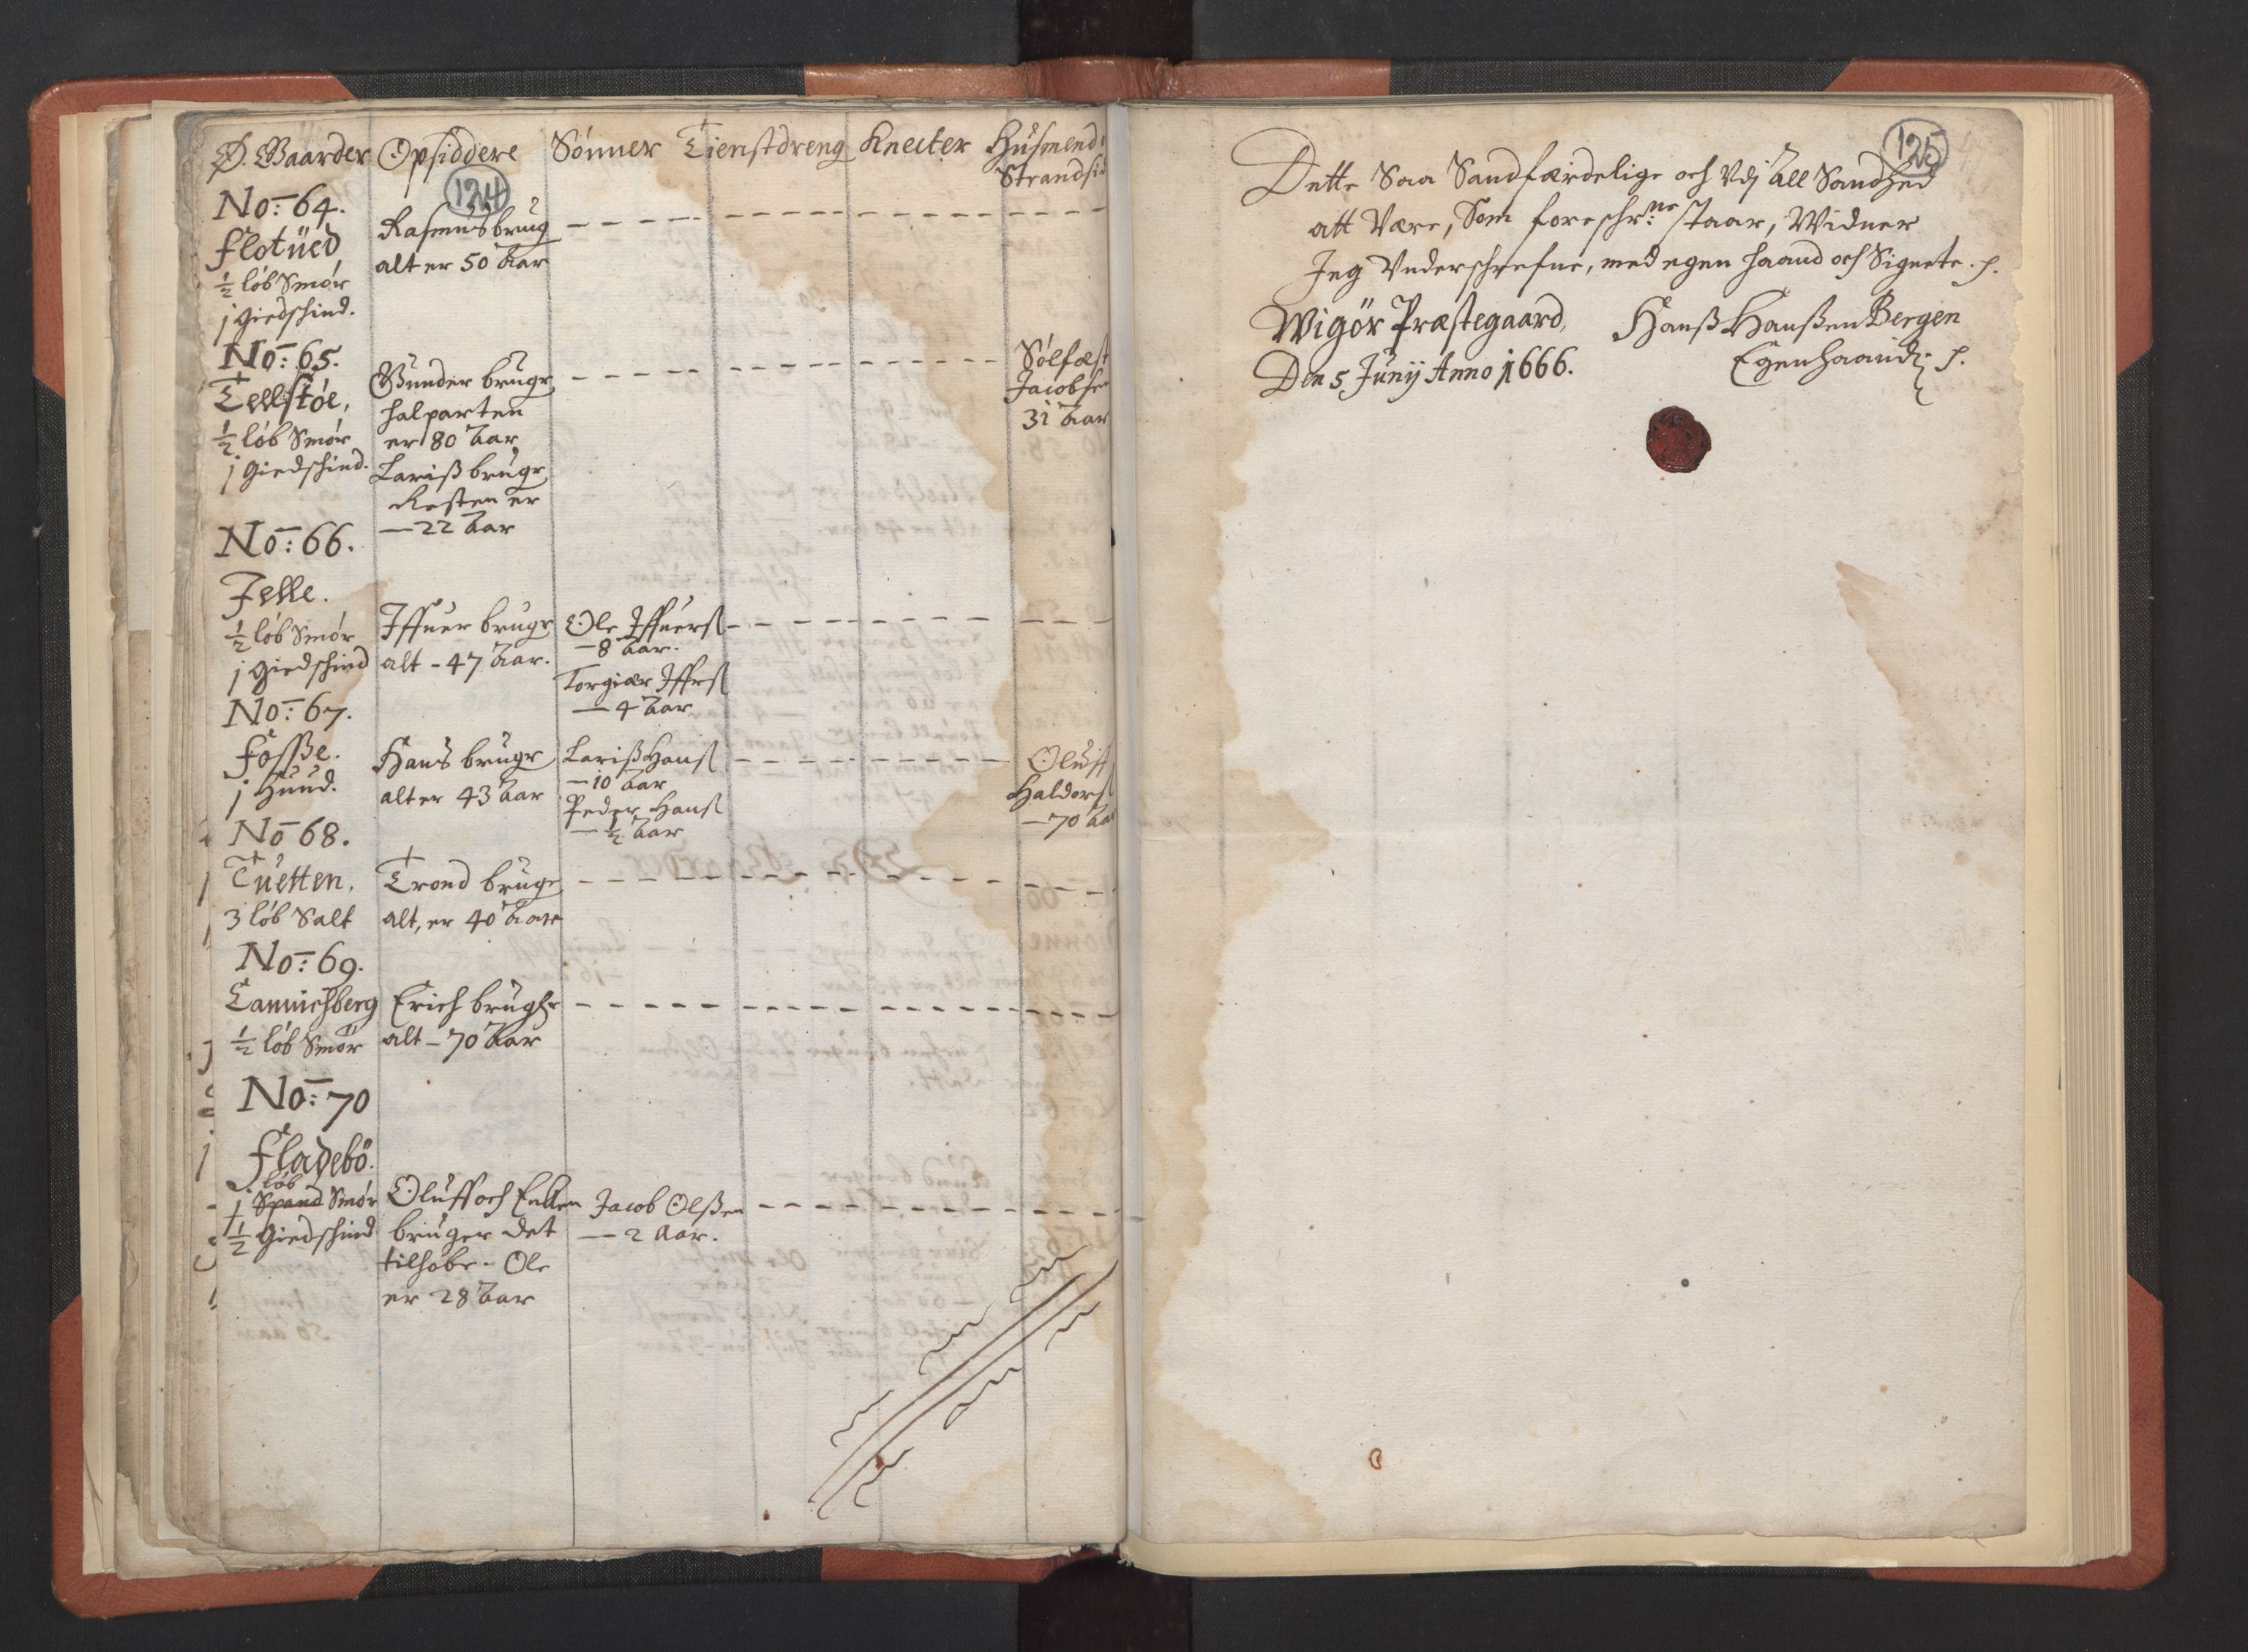 Ø. Gaarder Opsiddere Sønner Tienstdreng Knecter Husmend
Strandsid
124
No: 64.
Flotued
½ løb Smør
j Giedschind.
Rasmus brug
alt er 50 Aar
No: 65.
Tellstøe,
½ løb Smør
j Giedschind.
Gunder brugr
halparten
er 80 Aar
Lariß brugr
Resten er
— 22 Aar
Sølfæst
Jacobsen
31 Aar
No: 66.
Jelle.
½ løb Smør
j Giedschind
Iffuer brugr
alt - 47 Aar.
Ole Iffuers
— 8 Aar.
Torgier Iffrs
— 4 Aar
No: 67.
Fosße.
j Hund.
Hans brugr
alt er 43 Aar
Lariß Hans
— 10 Aar
Peder Hans
— ½ Aar
Oluff
Haldors
— 70 Aar
No 68.
Tuetten.
3 løb Salt
Trond bruger
alt, er 40 Aar
No: 69.
Lannichberg
½ løb Smør
Erich brugr
alt - 70 Aar
No: 70
Fladebø.
løb
j Spand Smør
½ Giedschind
Oluff och Enken
bruger det
tilhobe - Ole
er 28 Aar
Jacob Olßen
— 2 Aar.
125
Dette Saa Sandfærdelige och Vdj All Sandhed
att Være, Som foreschr:ne staar, Widner
Jeg Vnderschrefne, med egen Haand och Signete.
Wigør Præstegaard, Hanß Hanßen Bergen
Den 5 Junij Anno 1666. Egenhaand